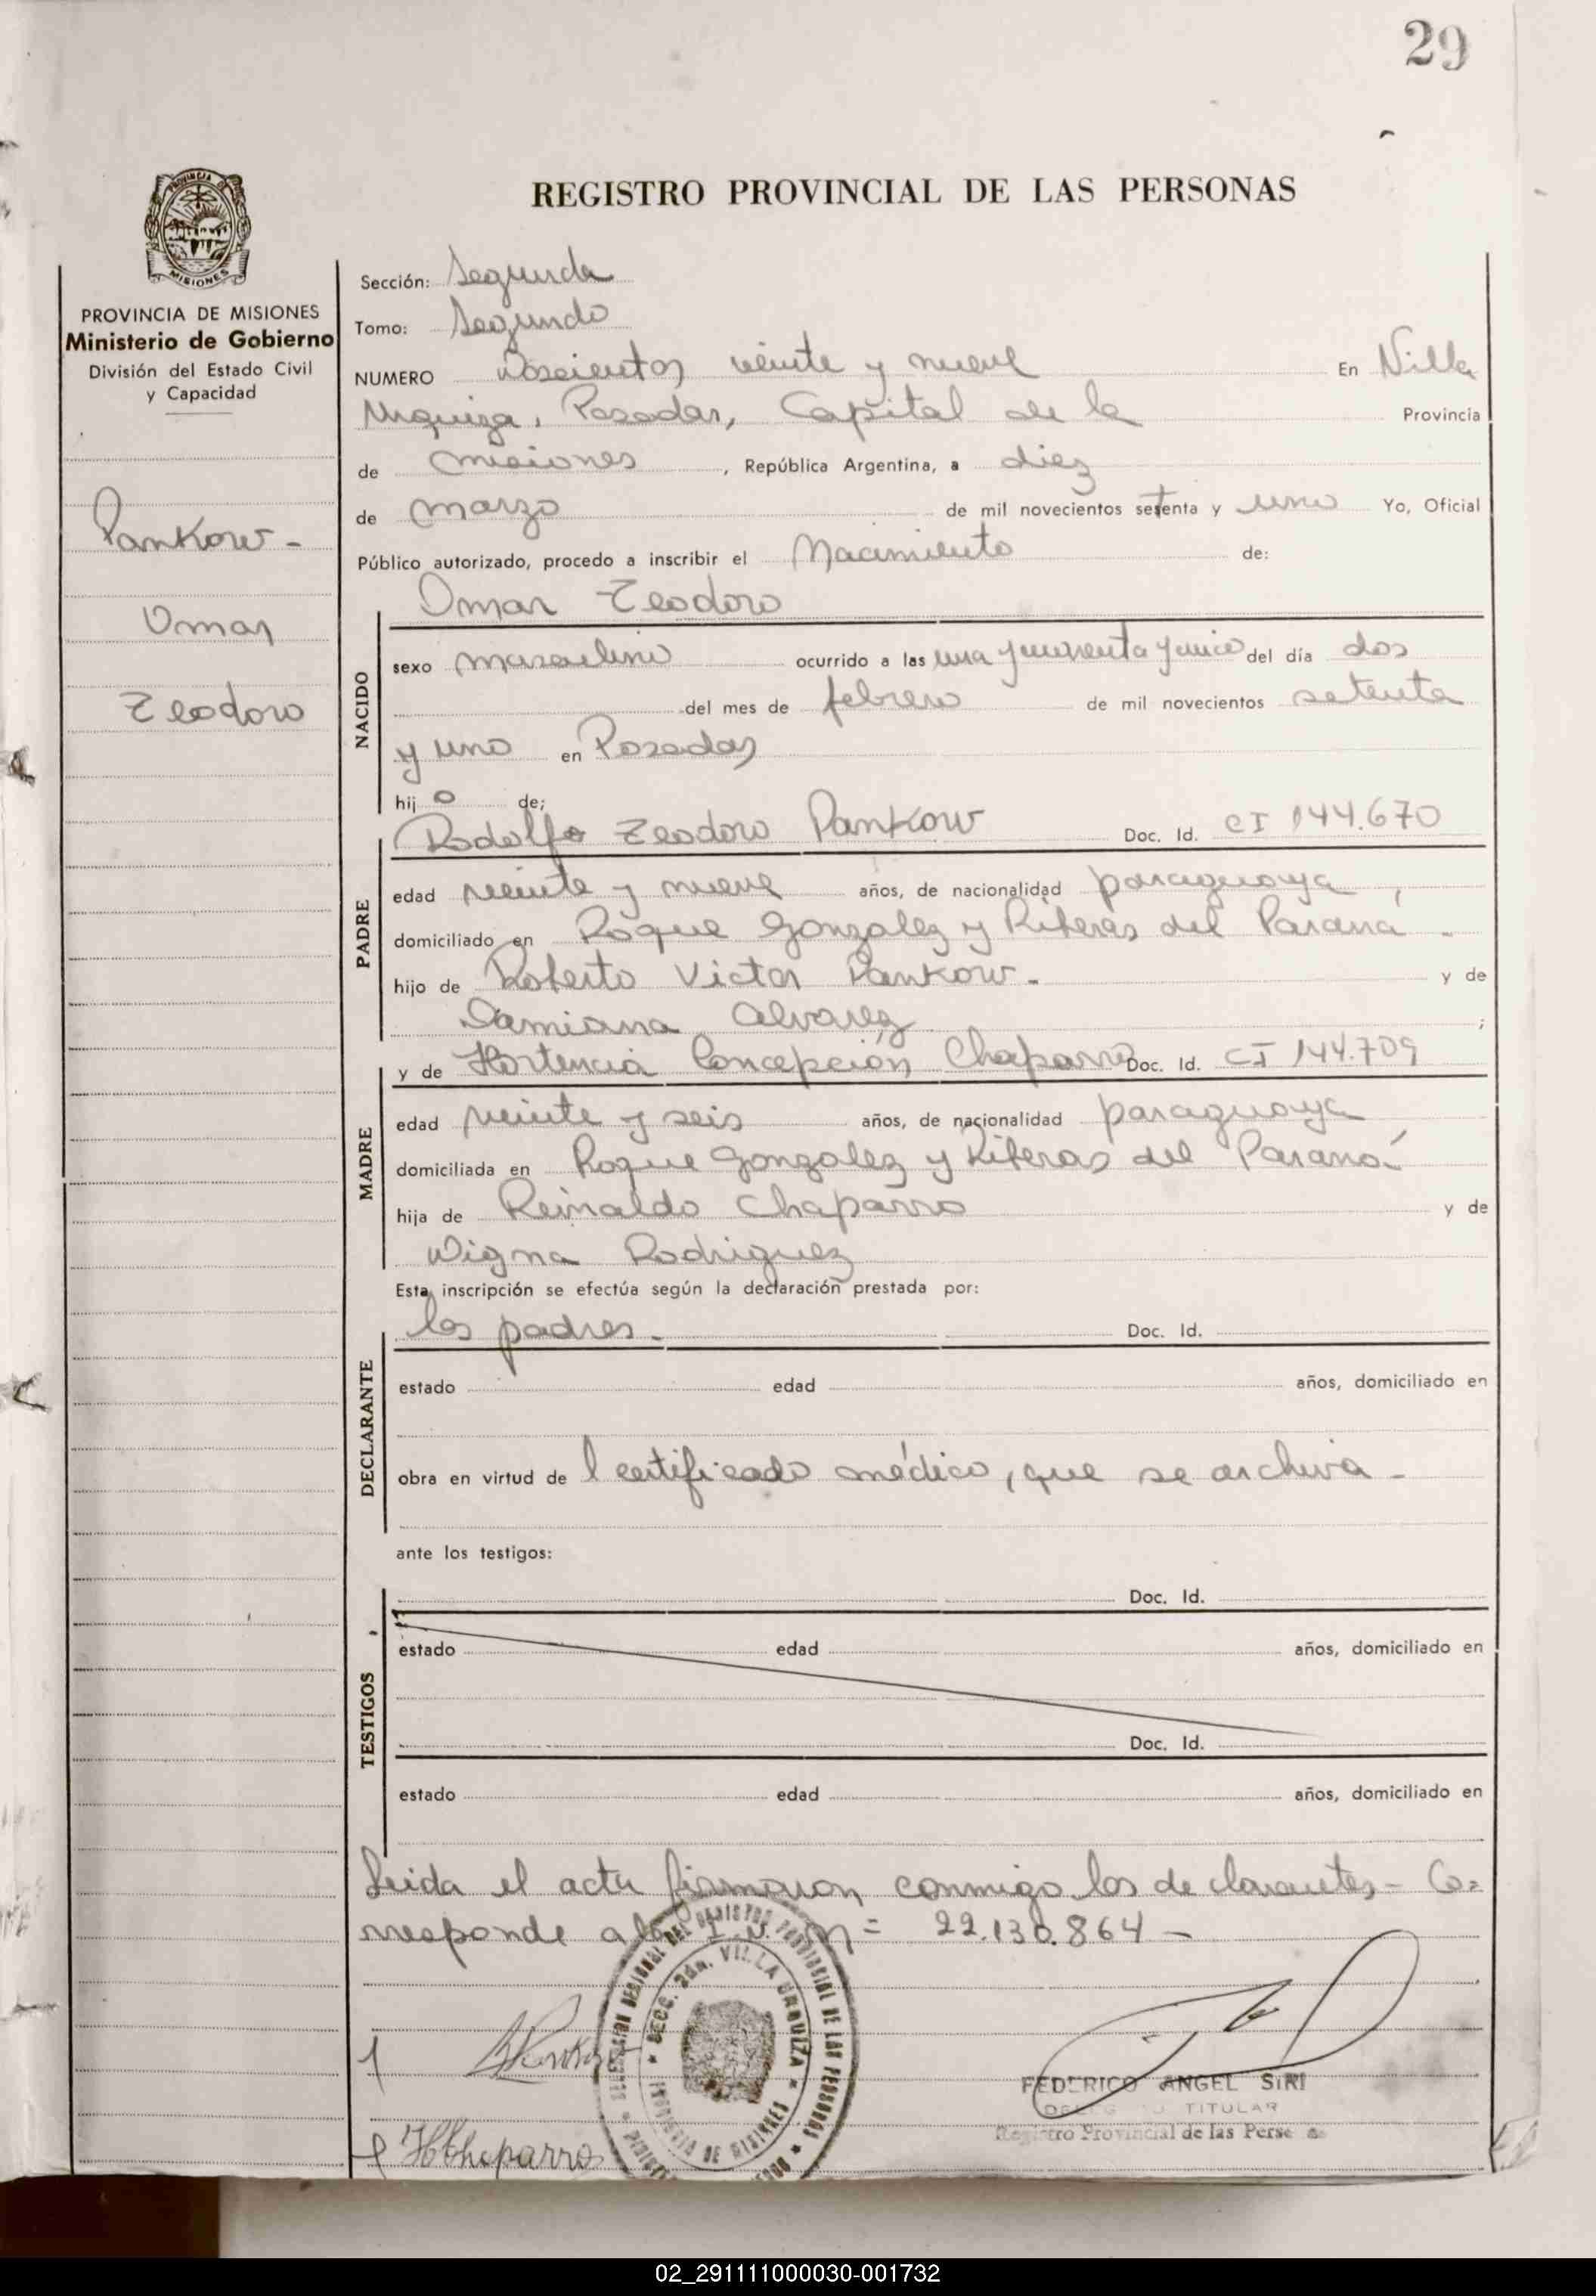 29
REGISTRO PROVINCIAL DE LAS PERSONAS
PROVINCIA
MISIONES
PROVINCIA DE MISIONES
Ministerio de Gobierno
División del Estado Civil
y Capacidad
Pankow-
Omar
Teodoro
Sección: Segunda
Tomo: Segundo
NUMERO Doscientos veinte y nueve En Villa
Urquiza, Posadas, Capital de la Provincia
de Misiones, República Argentina, a diez
de marzo de mil novecientos setenta y uno Yo, Oficial
Público autorizado, procedo a inscribir el Nacimiento de:
Omar Teodoro
NACIDO
sexo masculino ocurrido a las una y cuarenta y cinco del día dos
del mes de febrero de mil novecientos setenta
y uno en Posadas
hijo de;
Rodolfo Teodoro Pankow Doc. Id. CI 144.670
PADRE
edad veinte y nueve años, de nacionalidad paraguaya,
domiciliado en Roque Gonzalez y Riberas del Paraná -
hijo de Roberto Victor Pankow - y de
Damiana Alvarez ;
y de Hortencia Concepción Chaparro Doc. Id. CI 144.709
MADRE
edad veinte y seis años, de nacionalidad paraguaya
domiciliada en Roque Gonzalez y Riberas del Paraná-
hija de Reinaldo Chaparro y de
Digna Rodriguez
Esta inscripción se efectúa según la declaración prestada por:
los padres - Doc. Id.
DECLARANTE
estado edad años, domiciliado en
obra en virtud de l certificado médico, que se archiva -
ante los testigos:
Doc. Id.
TESTIGOS
estado edad años, domiciliado en
Doc. Id.
estado edad años, domiciliado en
Leida el acta firmaron conmigo los declarantes - Co=
rresponde a la I.N. n= 22.130.864 -
SECC. 2da. VILLA URQUIZA
PROVINCIA DE MISIONES
HChaparro
FEDERICO ANGEL SIRI
TITULAR
Registro Provincial de las Perse
02_291111000030-001732